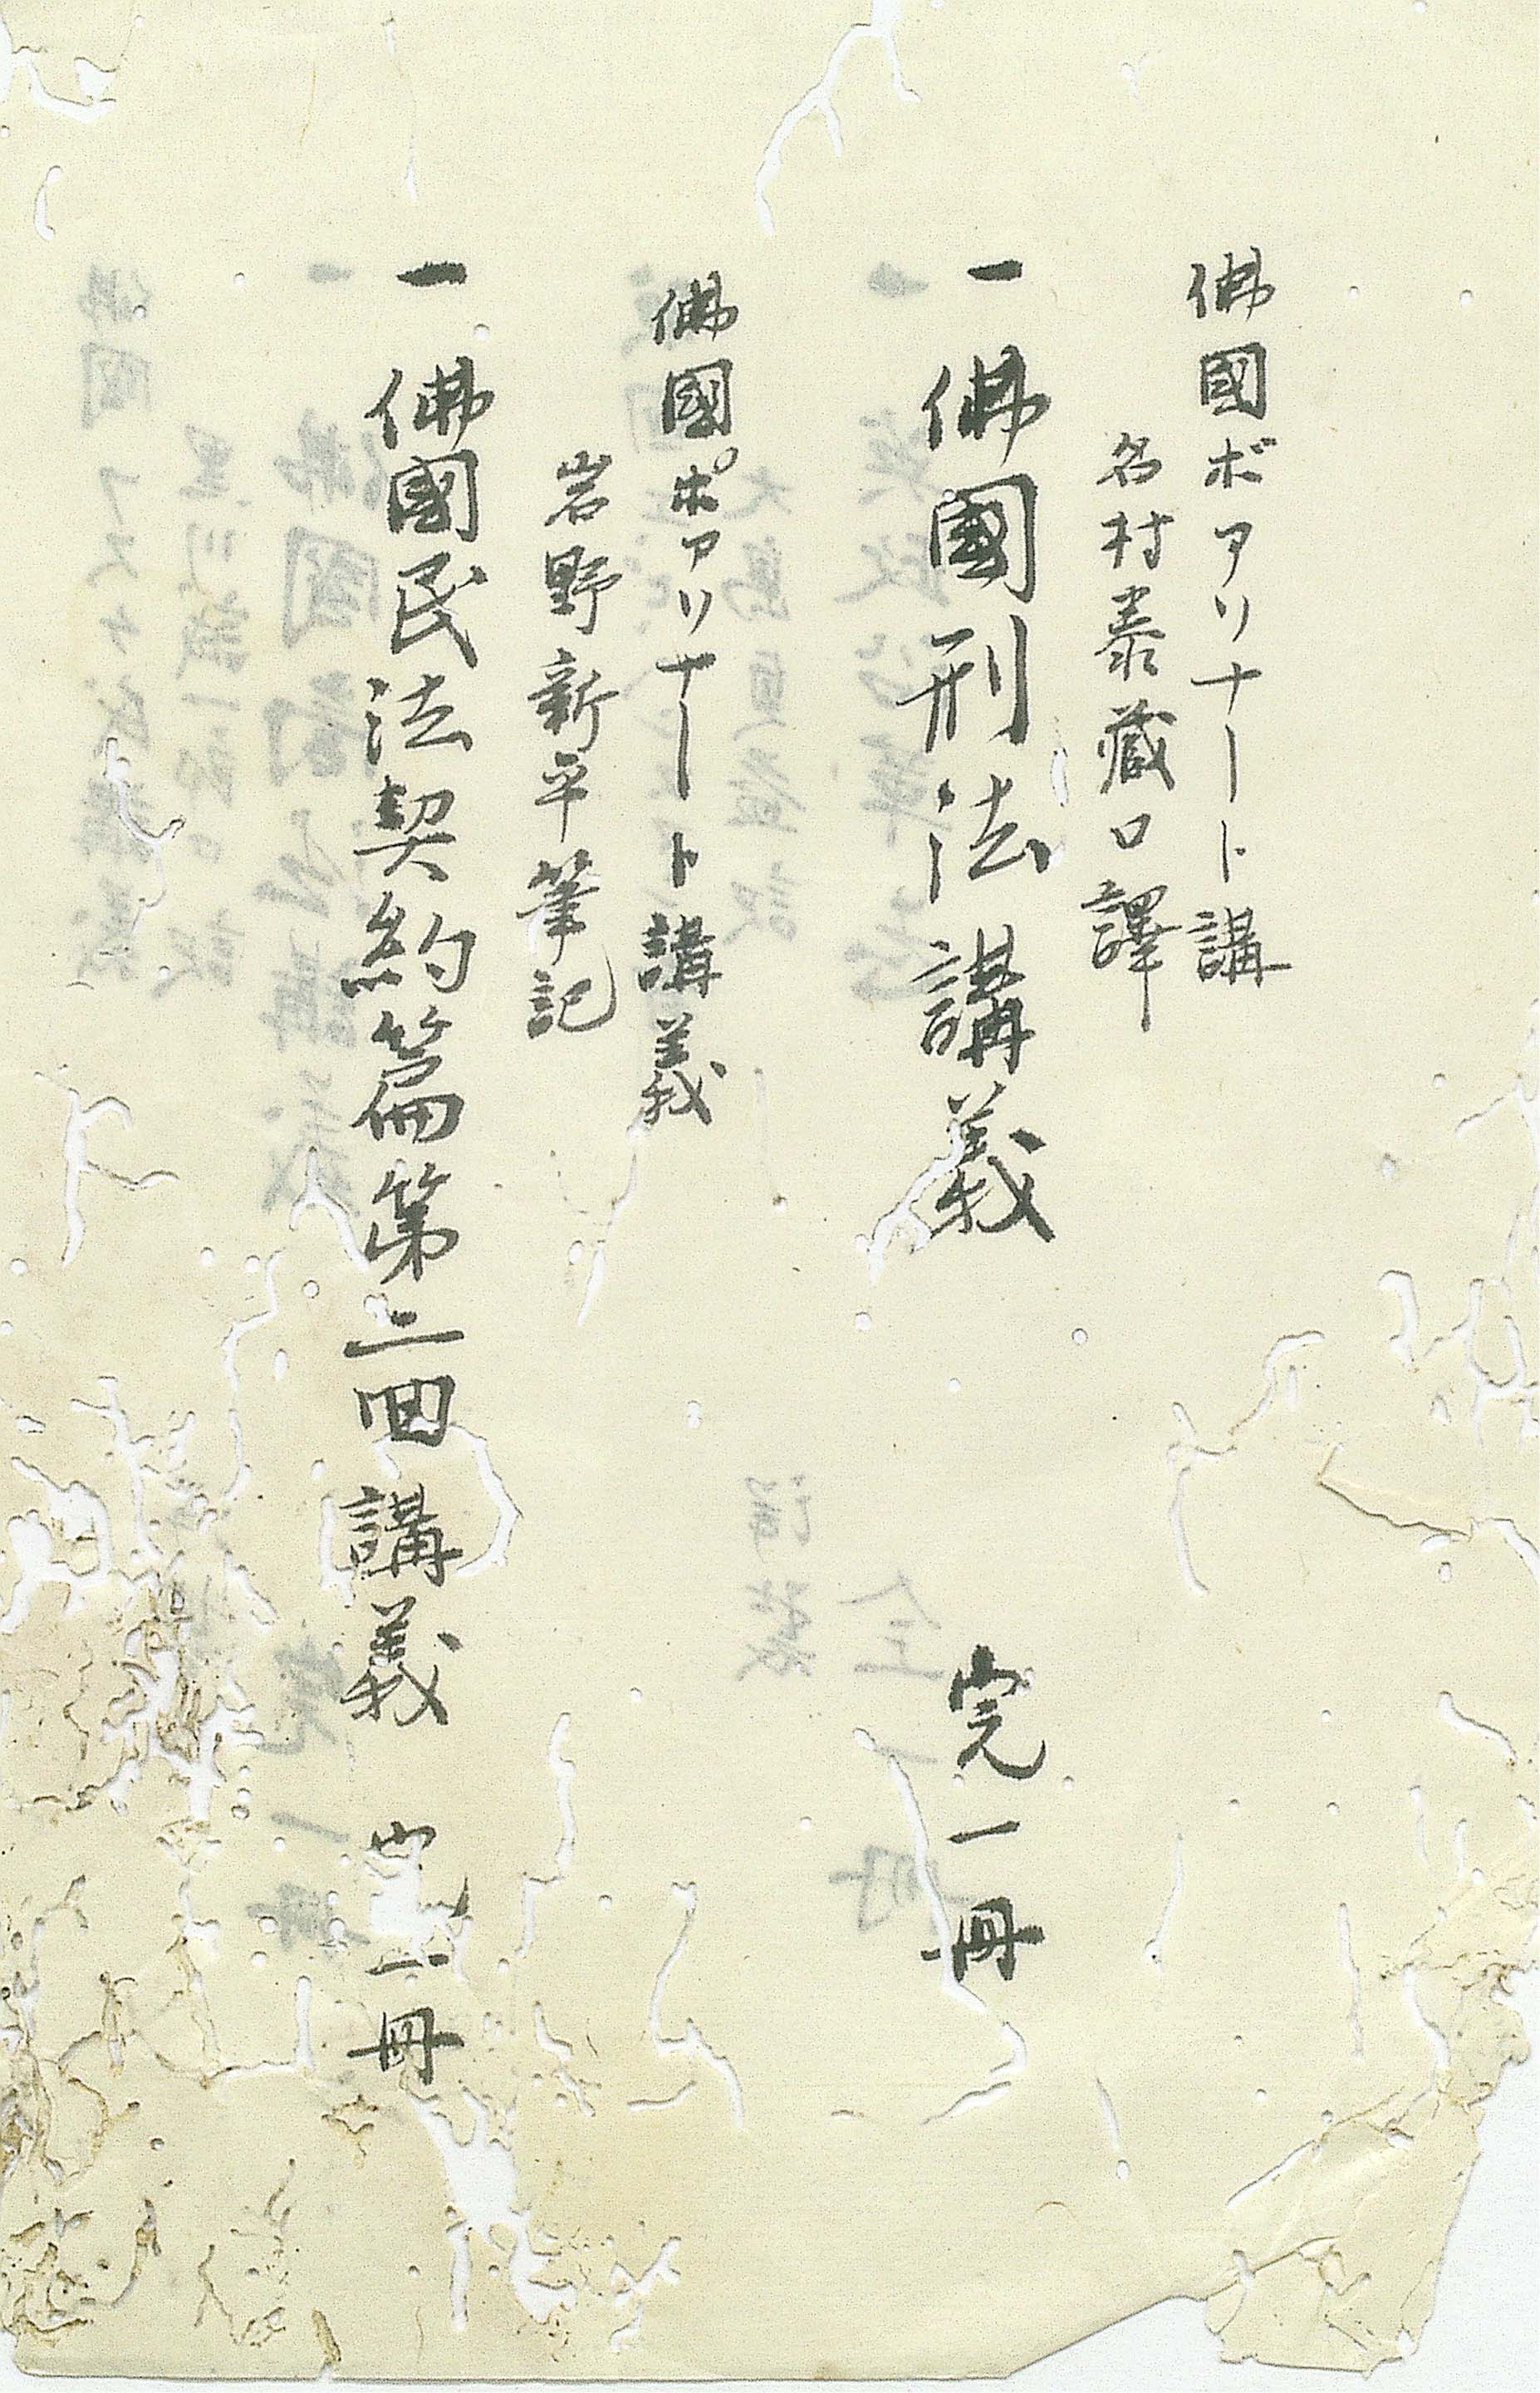 佛國ボアソナート講
名村泰藏口譯
一 佛國刑法講義 完一冊
佛國ポアソナート講義
岩野新平筆記
一 佛國民法契約篇第二回講義 完一冊